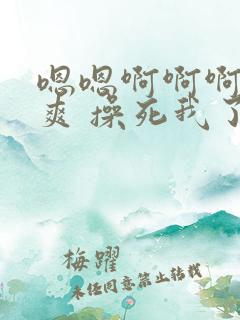 嗯嗯啊啊啊
爽 操死我了
梅躍
未经同意禁止转载